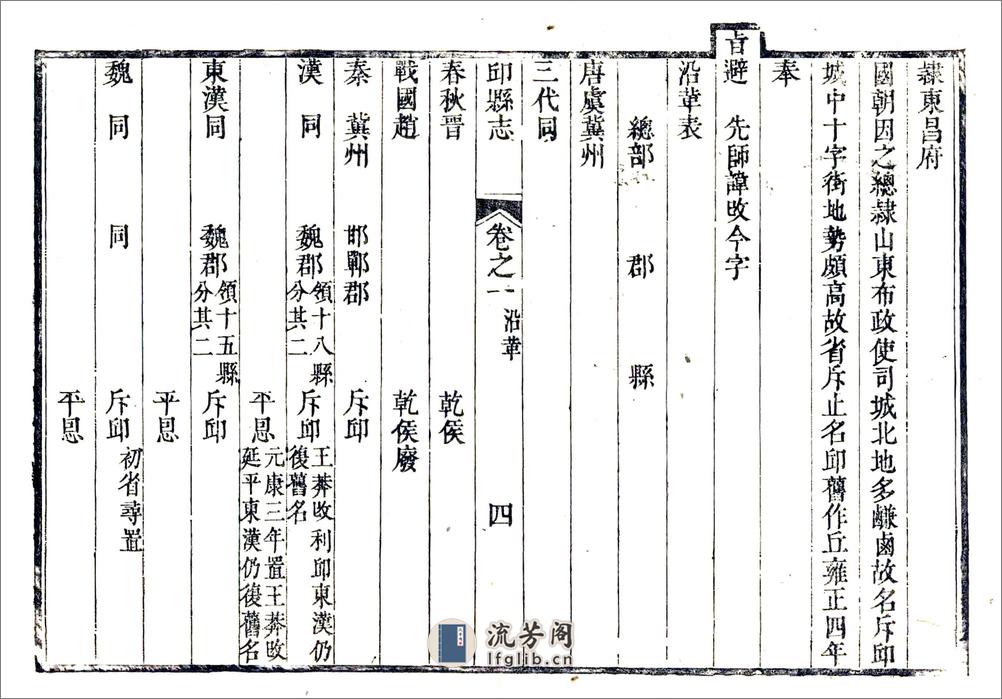 隸東昌府
國朝因之總隸山東布政使司城北地多鹻鹵故名斥邱
城中十字街地勢頗高故省斥止名邱舊作丘雍正四年
奉
旨避　先師諱改今字
沿革表
總部　郡　縣
唐虞冀州
三代同
邱縣志　卷之一　沿革　四
春秋晉　乾侯
戰國趙　乾侯廢
秦　冀州　邯鄲郡　斥邱
漢　同　魏郡　領十八縣分其二　斥邱　王莽改利邱東漢仍復舊名
平恩　元康三年置王莽改延平東漢仍復舊名
東漢同　魏郡　領十五縣分其二　斥邱
平恩
魏　同　同　斥邱　初省尋置
平恩
流芳阁
lfglib.cn